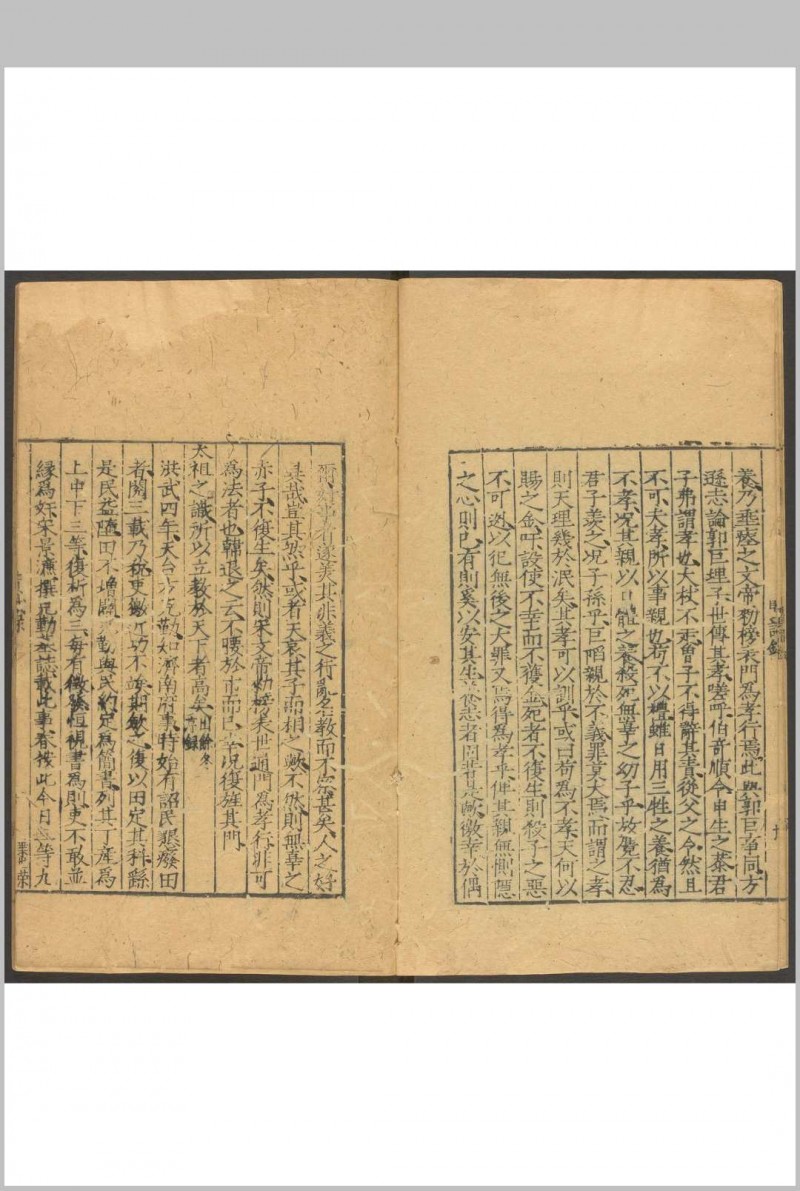 養乃埀瘞之文帝勑榜表門爲孝行焉此與郭巨事同方
遜志論郭巨埋子世傳其孝嗟呼伯奇順令申生之恭君
子弗謂孝也大杖不走曾子不得辭其責從父之令然且
不可夫孝所以事親也苟不以禮雖日用三牲之養猶爲
不孝况其親以口體之養殺無辜之幼子乎放麑不忍
君子羨之况子孫乎巨䧟親於不義罪莫大焉而謂之孝
則天理幾於泯矣其孝可以訓乎或曰苟爲不孝天何以
賜之金吁設使不幸而不獲金死者不復生則殺子之惡
不可逃以犯無後之大罪又焉得爲孝乎俾其親無惻隱
之心則已有則奚以安其生 者 是歟徼幸於偶
爾 者遂美其非義之行亂名教而不 甚矣人之好
哉豈其然乎或者天哀其子而相之歟不然則無辜之
赤子不復生矣然則宋文帝勑榜表世通門爲孝行非可
爲法者也韓退之云不腰於市而已幸况復旌其門
太祖之識所以立教於天下者高矣
洪武四年天台方克勤知濟南府事時始有詔民懇廢田
者閱三載乃稅吏徵近功不竢期斂之復以田定其科繇
是民益墮田不增闢克勤與民約定爲簡書列其丁產爲
上中下三等復析爲三每有徵發恒視書爲則吏不敢並
緣爲奸宋景濂撰克勤 誌載此事春按此今日三等九